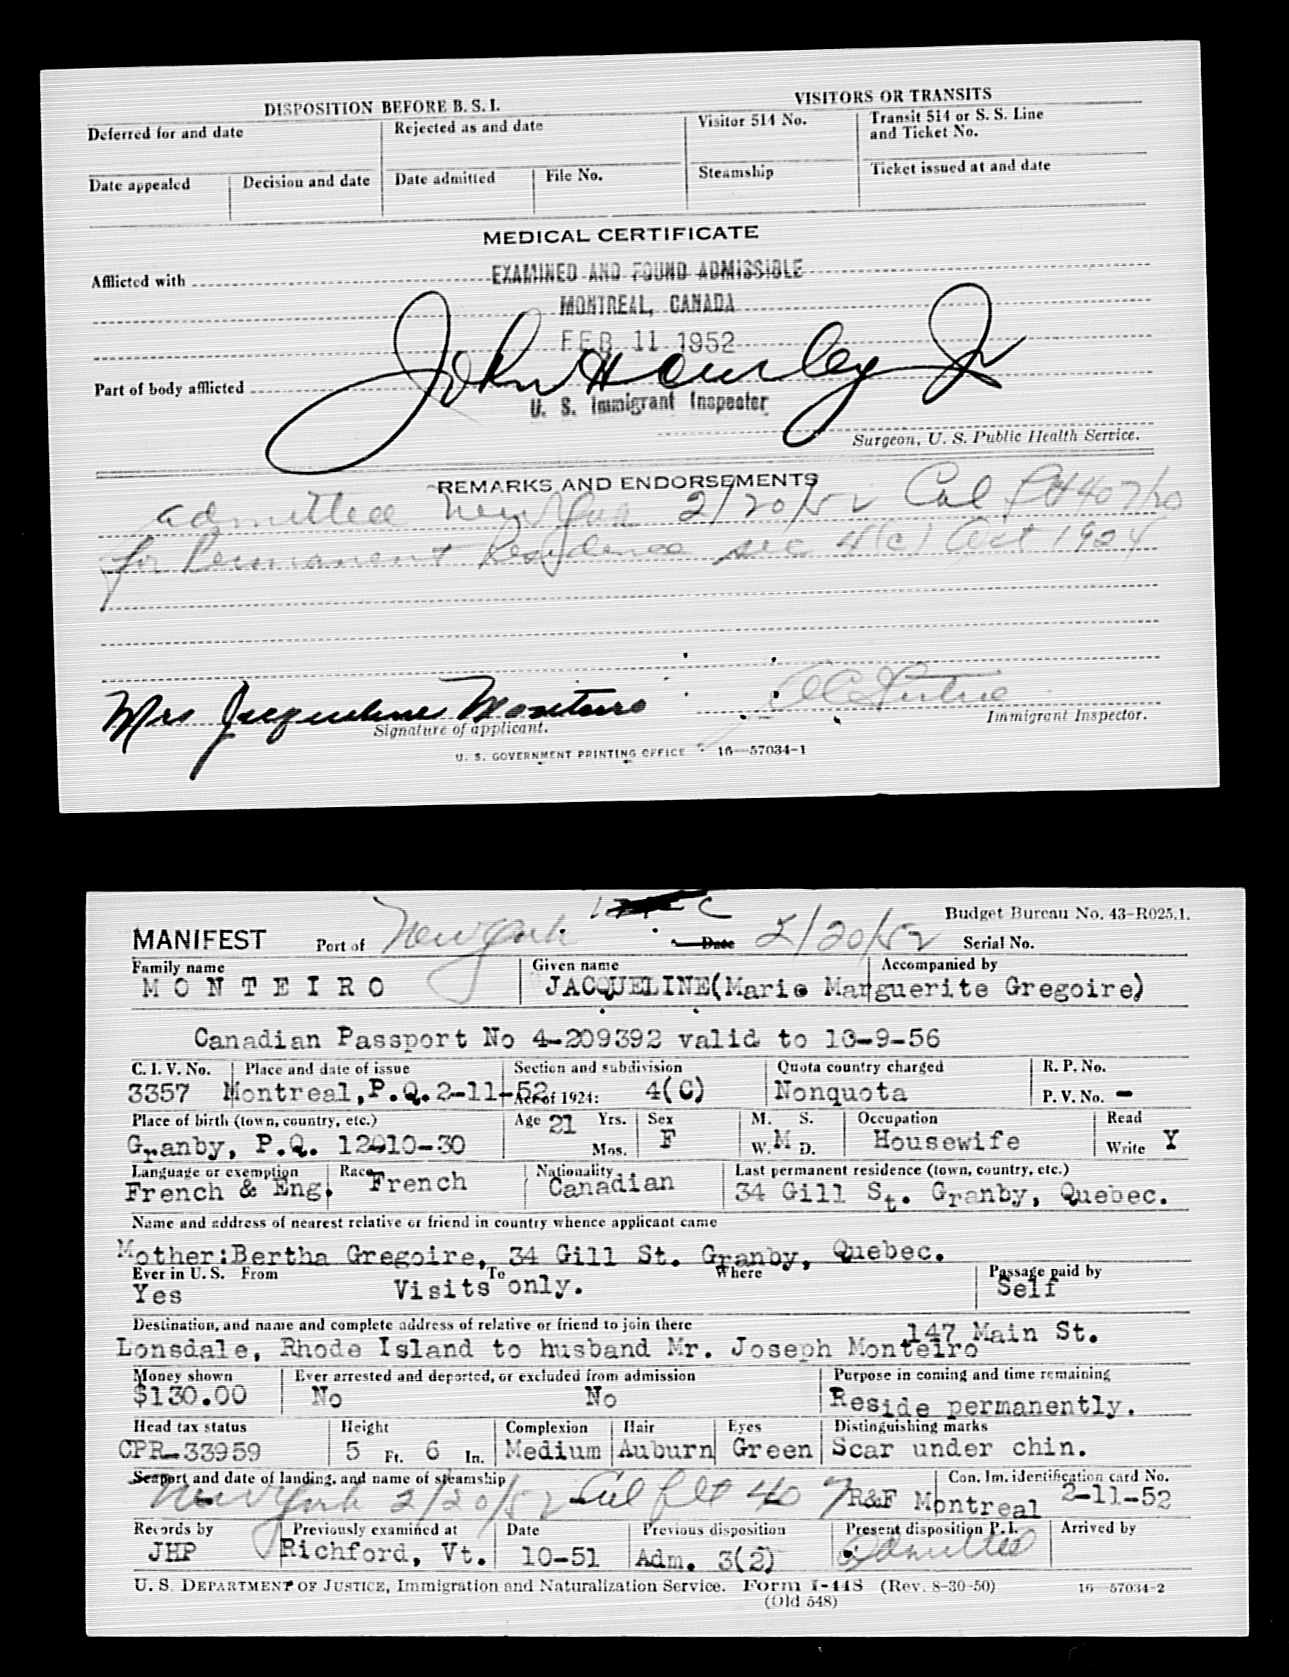 DISPOSITION BEFORE B. S. I.
VISITORS OR TRANSITS
Deferred for and date
Rejected as and date
Visitor 514 No.
Transit 514 or S. S. Line and Ticket No.
Date appealed
Decision and date
Date admitted
File No.
Steamship
Ticket issued at and date
MEDICAL CERTIFICATE
Afflicted with
EXAMINED AND FOUND ADMISSIBLE
MONTREAL, CANADA
FEB 11 1952
John Hurley Jr
Part of body afflicted
U. S. Immigrant Inspector
Surgeon, U. S. Public Health Service.
REMARKS AND ENDORSEMENTS
admitted New York 2/20/52 Col flt 407/20
for Permanent Residence sec 4(c) Act 1924
Mrs Jacqueline Monteiro
Signature of applicant.
Immigrant Inspector.
U. S. GOVERNMENT PRINTING OFFICE 16—57034-1
Budget Bureau No. 43-R025.1.
MANIFEST Port of New York Date 2/20/52 Serial No.
Family name Given name Accompanied by
MONTEIRO JACQUELINE(Marie Marguerite Gregoire)
Canadian Passport No 4-209392 valid to 10-9-56
C. I. V. No. Place and date of issue Section and subdivision Quota country charged R. P. No.
3357 Montreal,P.Q.2-11-52 Act of 1924: 4(C) Nonquota P. V. No. -
Place of birth (town, country, etc.) Age 21 Yrs. Sex M. S. Occupation Read
Granby, P.Q. 12-10-30 Mos. F W. M D. Housewife Write Y
Language or exemption Race Nationality Last permanent residence (town, country, etc.)
French & Eng. French Canadian 34 Gill St. Granby, Quebec.
Name and address of nearest relative or friend in country whence applicant came
Mother:Bertha Gregoire, 34 Gill St. Granby, Quebec.
Ever in U. S. From To Where Passage paid by
Yes Visits only. Self
Destination, and name and complete address of relative or friend to join there
147 Main St.
Lonsdale, Rhode Island to husband Mr. Joseph Monteiro
Money shown Ever arrested and deported, or excluded from admission Purpose in coming and time remaining
$130.00 No No Reside permanently.
Head tax status Height Complexion Hair Eyes Distinguishing marks
CPR-33959 5 Ft. 6 In. Medium Auburn Green Scar under chin.
Seaport and date of landing, and name of steamship Con. Im. identification card No.
New York 2/20/52 Col flt 407 R&F Montreal 2-11-52
Records by Previously examined at Date Previous disposition Present disposition P. I. Arrived by
JHP Richford, Vt. 10-51 Adm. 3(2) Admitted
U. S. DEPARTMENT OF JUSTICE, Immigration and Naturalization Service. Form I-448 (Rev. 8-30-50) 16—57034-2
(Old 548)